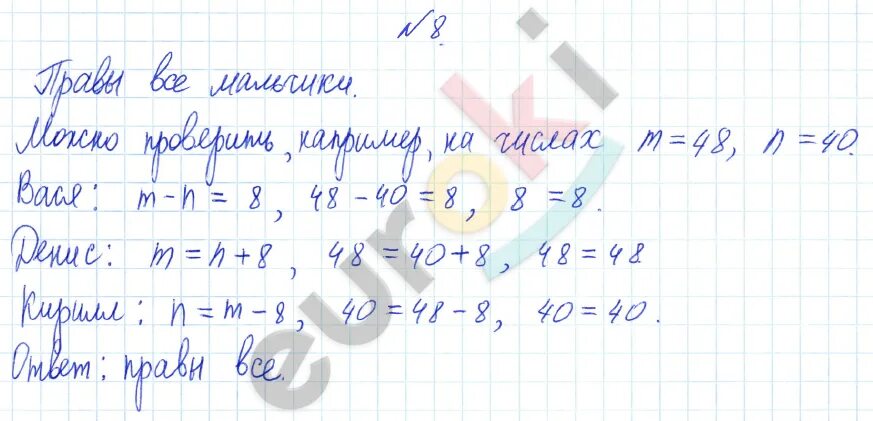 № 8.
Правы все мальчики.
Можно проверить, например, на числах m = 48, n = 40.
Вася: m - n = 8, 48 - 40 = 8, 8 = 8.
Денис: m = n + 8, 48 = 40 + 8, 48 = 48
Кирилл: n = m - 8, 40 = 48 - 8, 40 = 40.
Ответ: правы все.
euroki